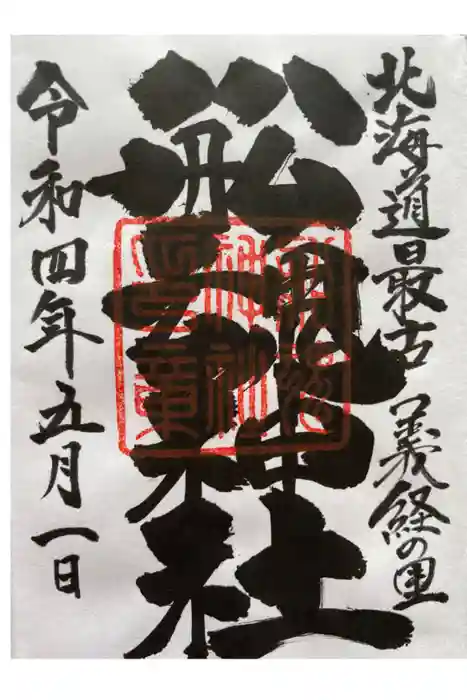 北海道最古 義経の里
船魂神社
令和四年五月一日